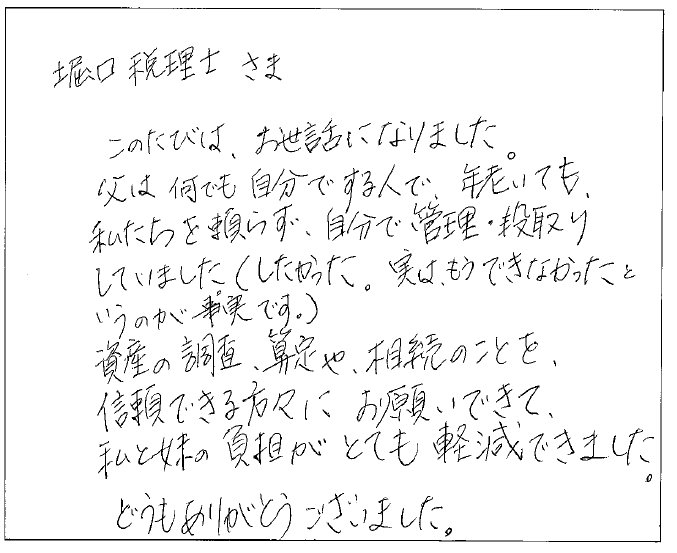 堀口税理士 さま
このたびは、お世話になりました。
父は何でも自分でする人で、年老いても、
私たちを頼らず、自分で管理・段取り
していました。(したかった。実は、もうできなかったと
いうのが事実です。)
資産の調査、算定や、相続のことを、
信頼できる方々に お願いできて、
私と妹の負担が とても 軽減できました。
どうもありがとうございました。